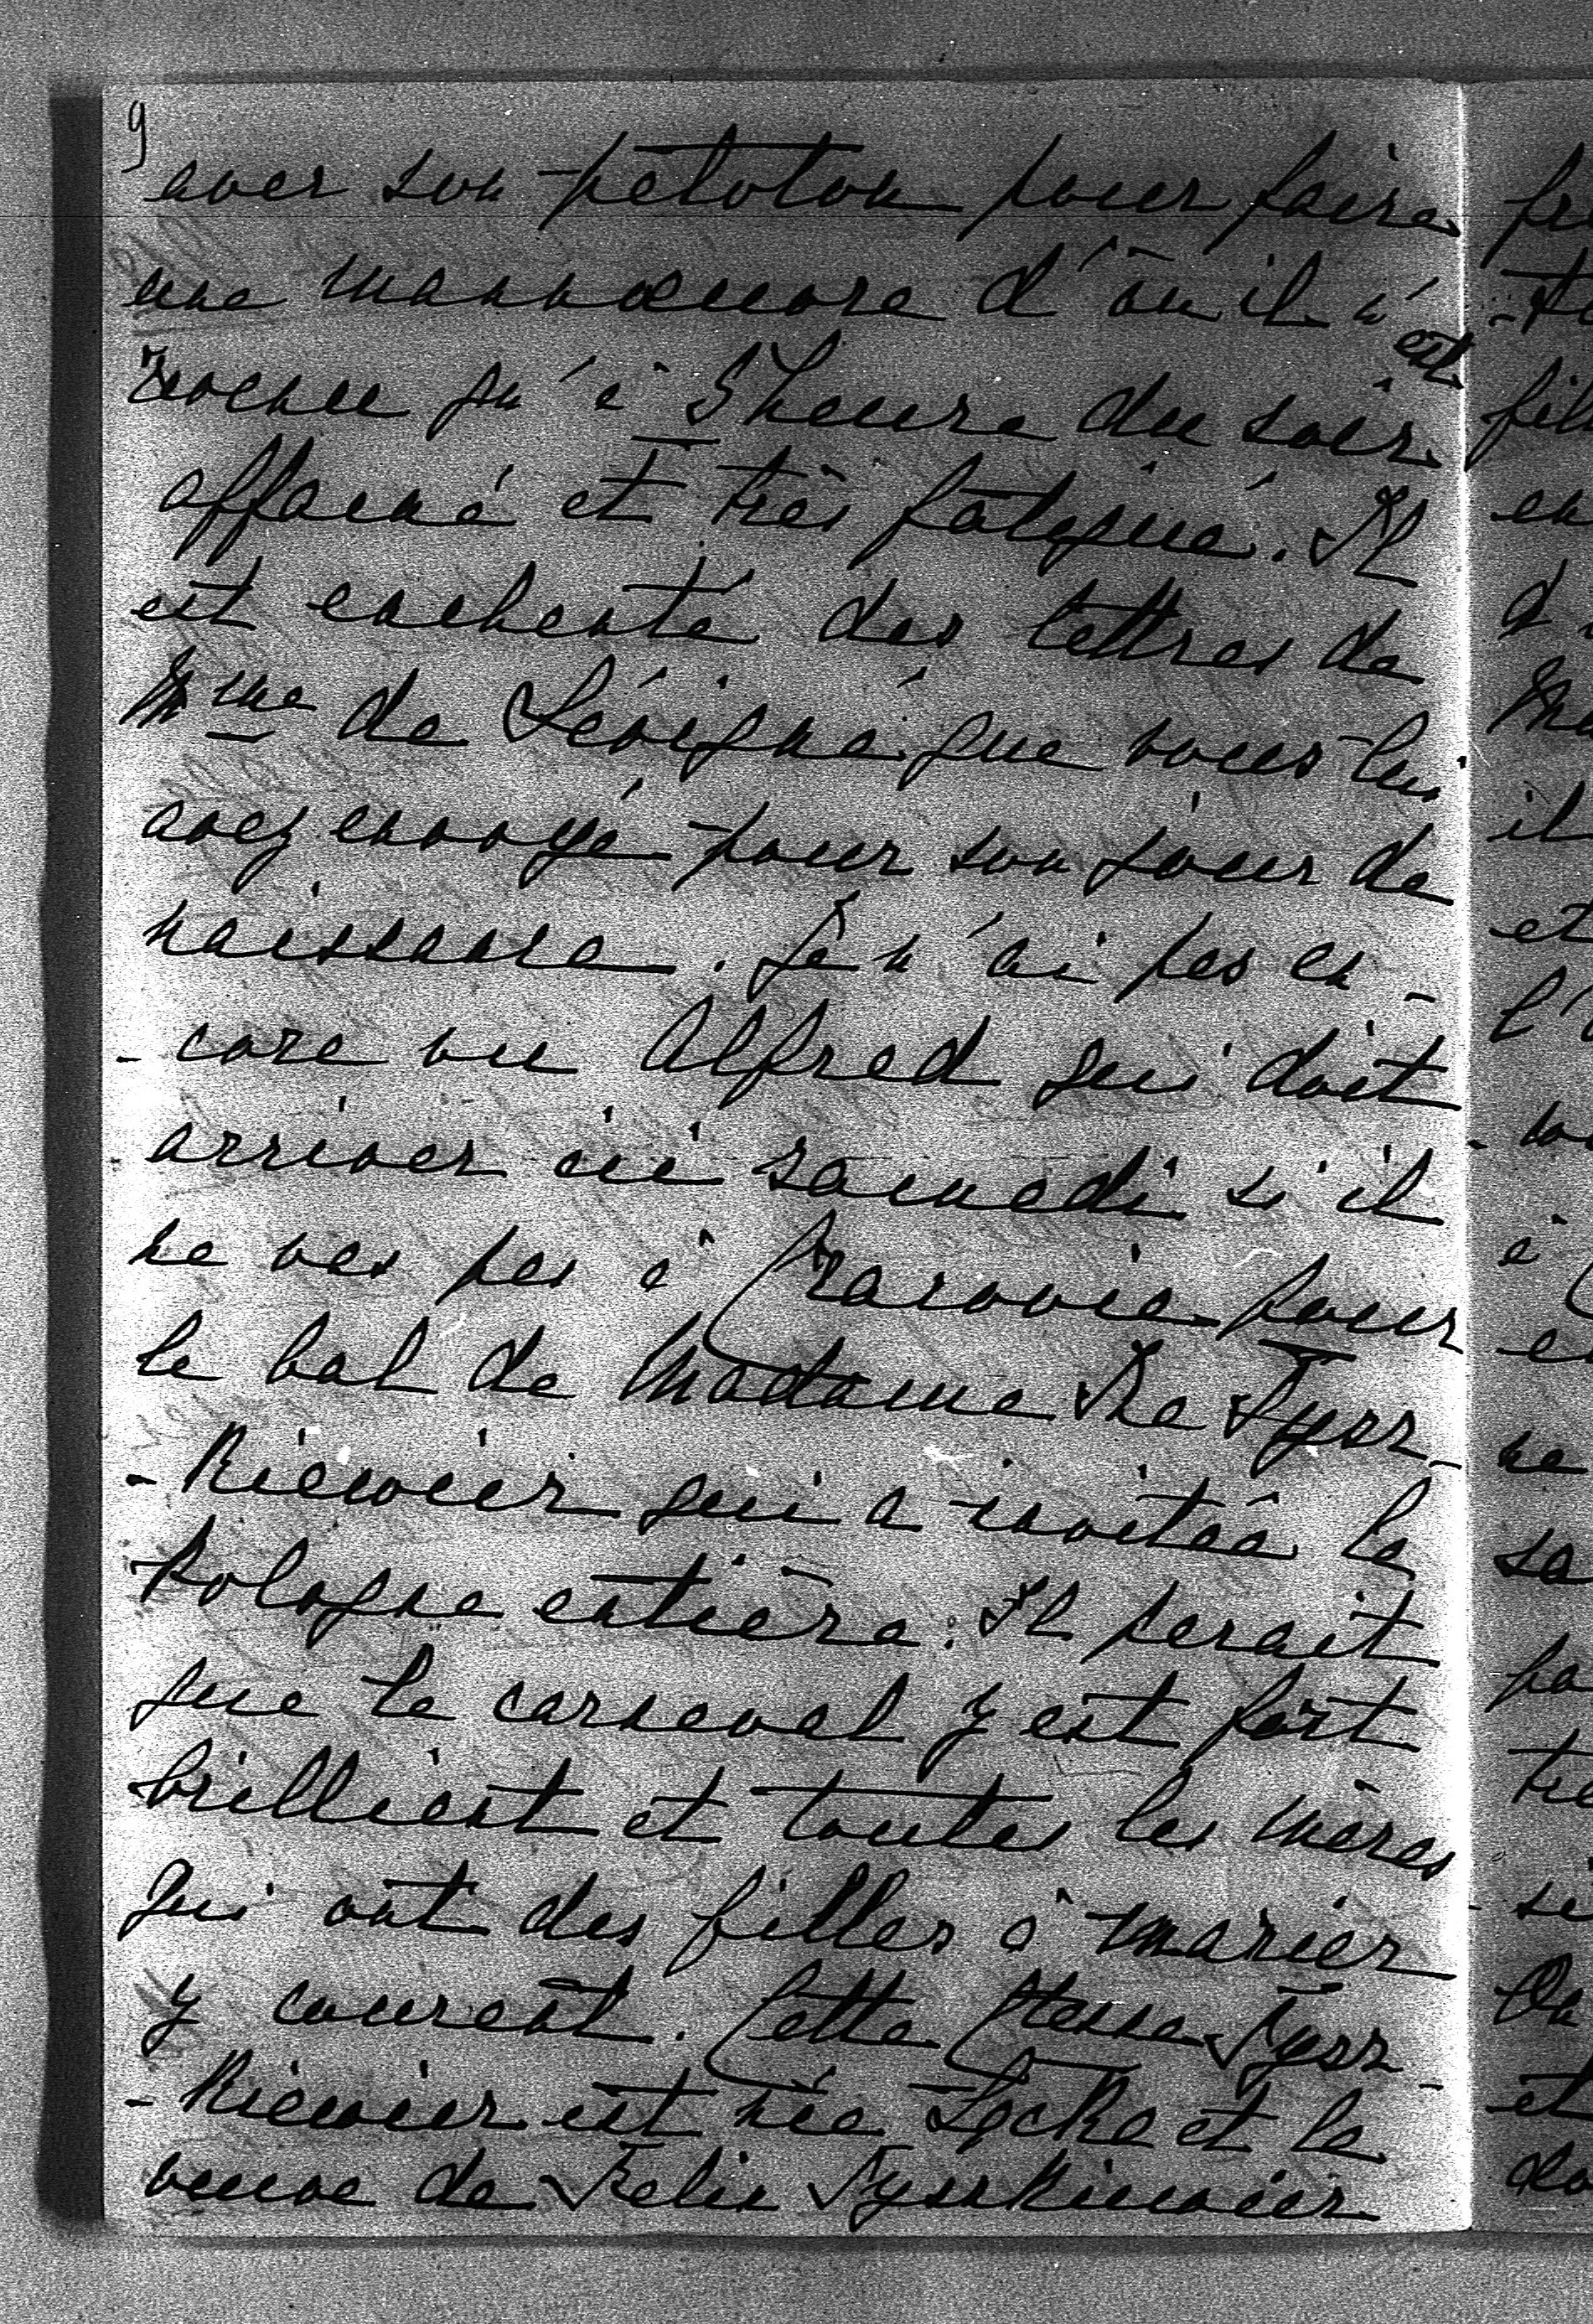 9
avec son peloton pour faire
une manœuvre d'où il n'est
revenu qu'à 5 heure du soir
affamé et très fatigué. Il
est enchanté des lettres de
Mme de Sévigné que vous lui
avez envoyé pour son jour de
naissance. Je n'ai pas en-
-core vu Alfred qui doit
arriver ici samedi s'il
ne vas pas à Cracovie pour
le bal de Madame Tysz-
-Kiewicz qui a invitée la
Pologne entière. Il parait
que le carnaval y est fort
brilliant et toutes les mères
qui ont des filles à marier
y courent. Cette Ctesse Tysz-
-Kiewicz est née et la
veuve de Felix Tyszkiewicz